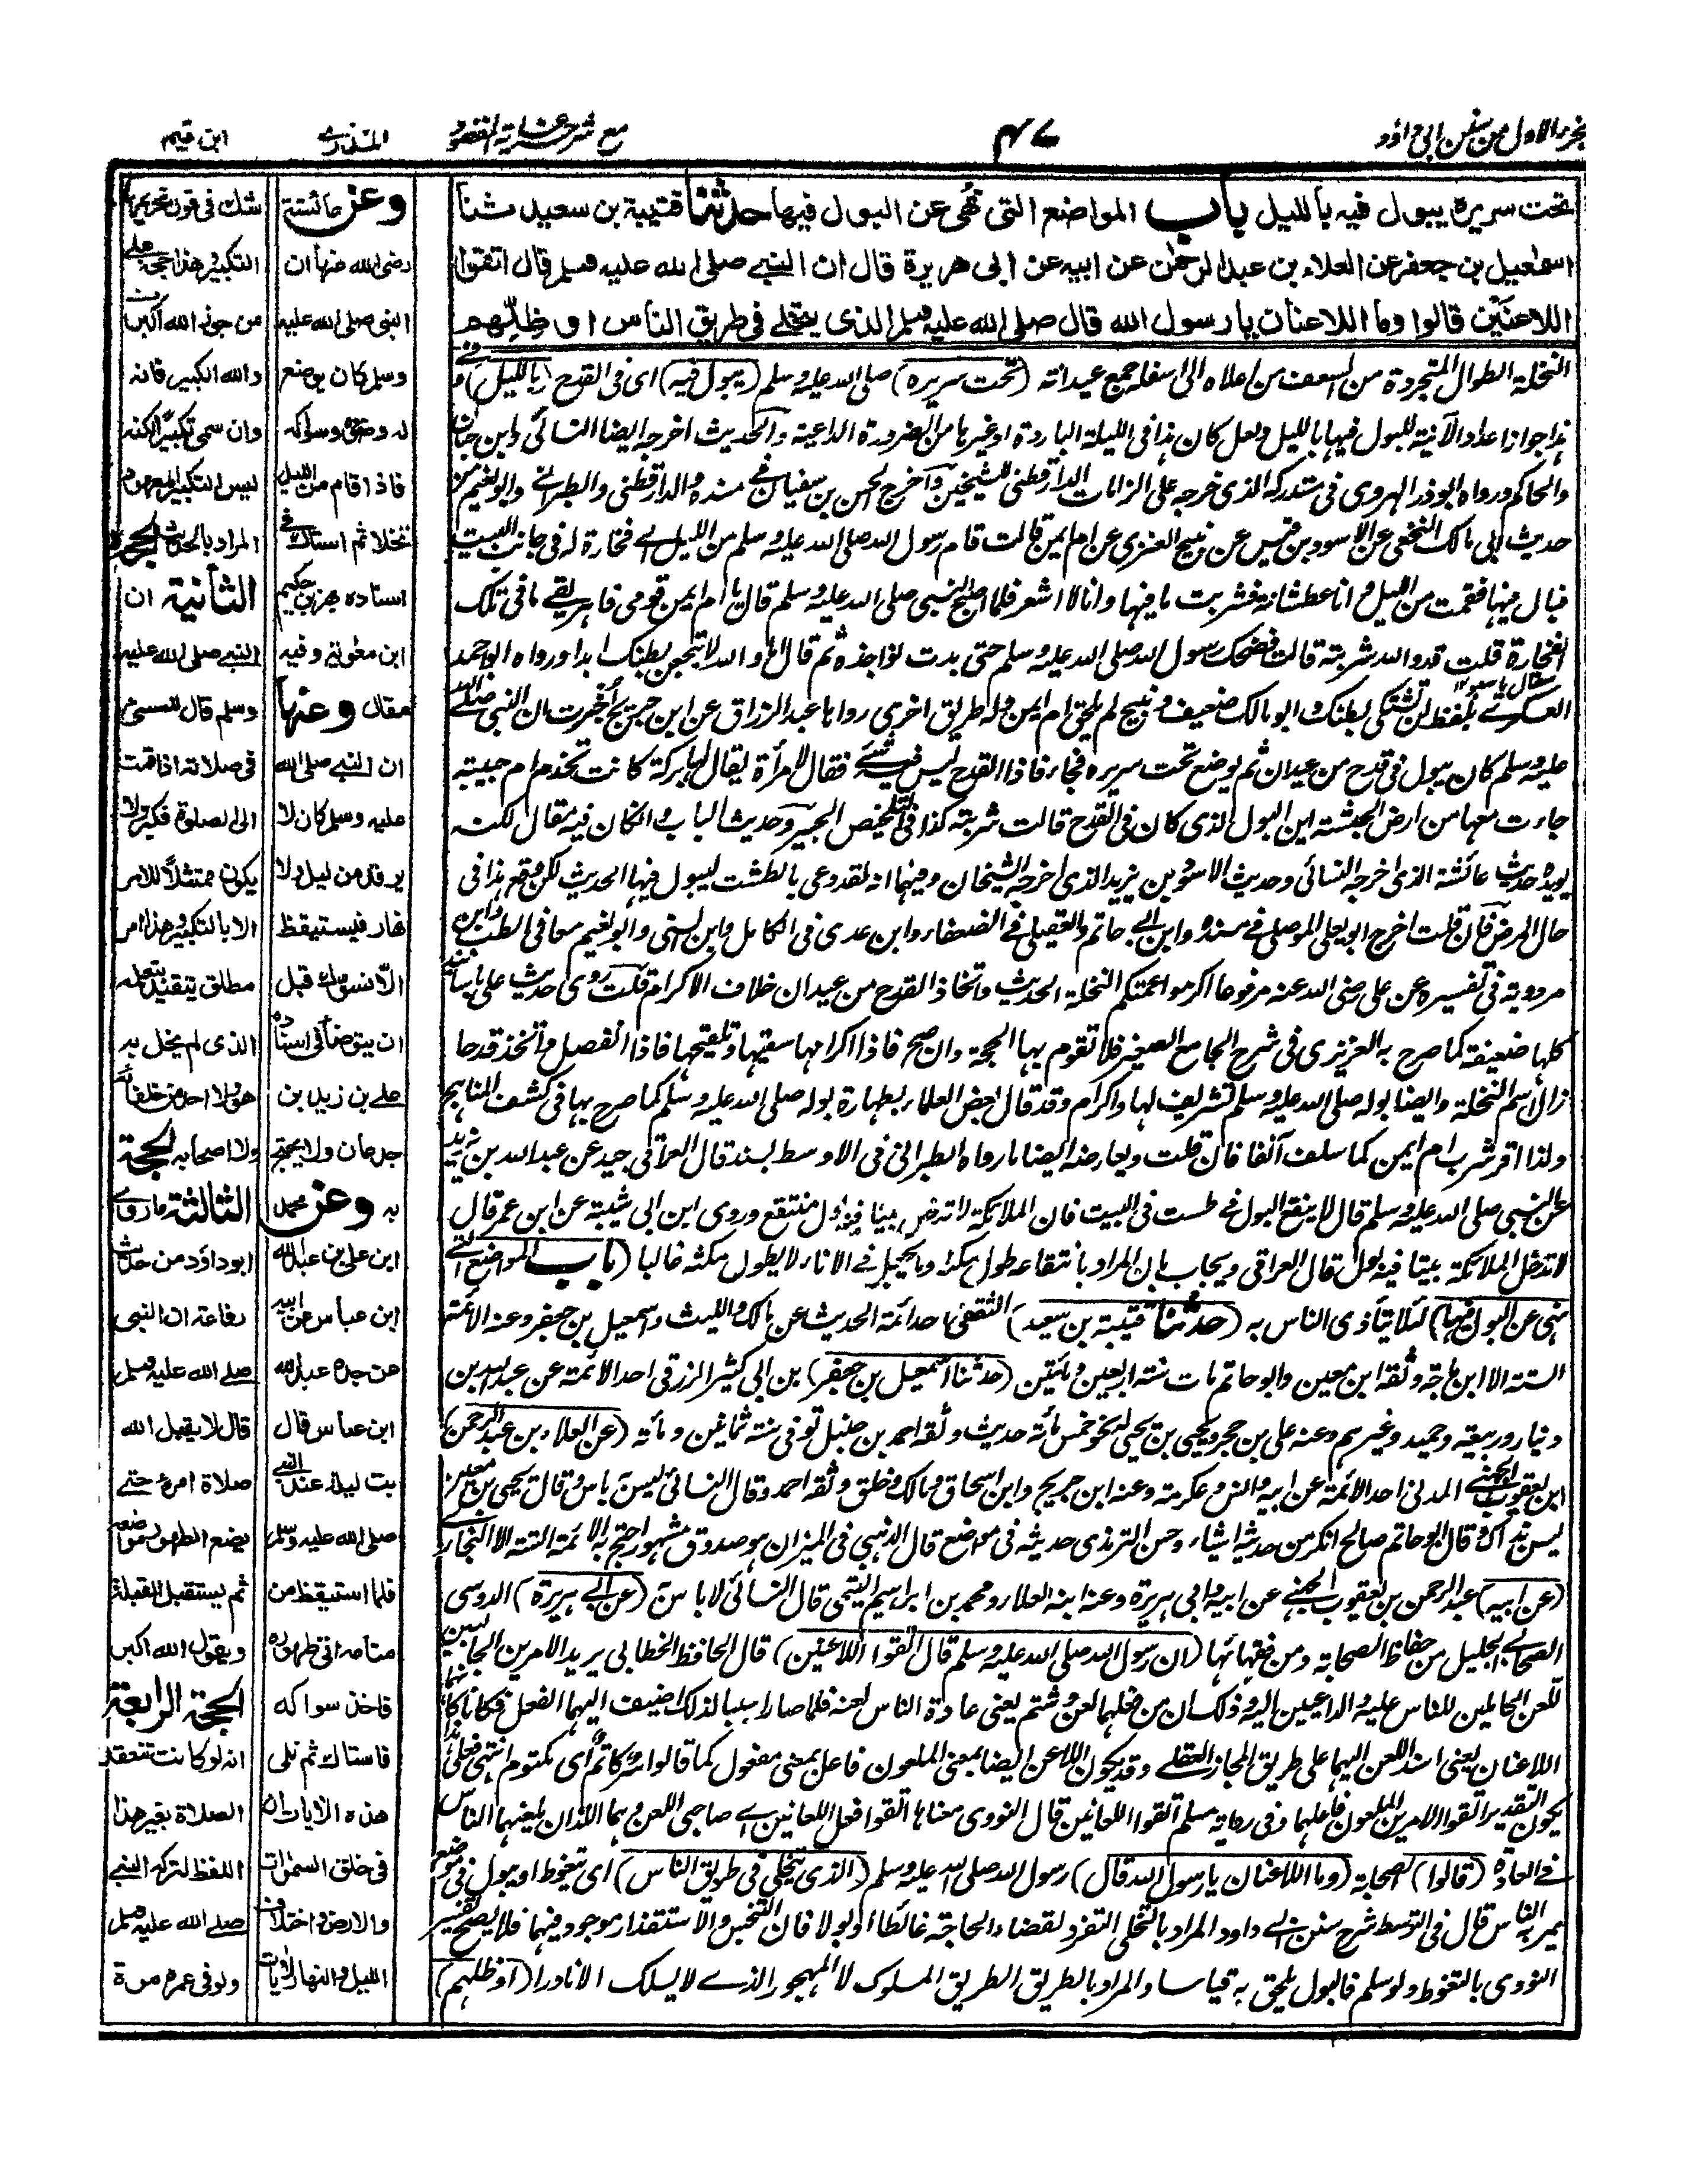 الجزء الاول من سنن ابى داؤد
٤٧
مع شرحه غاية المقصود
المنذرى
ابن قيم
تحت سريره يبول فيه بالليل باب المواضع التى نُهى عن البول فيها حدثنا قتيبة بن سعيد ثنا
اسمٰعيل بن جعفر عن العلاء بن عبد الرحمٰن عن ابيه عن ابى هريرة قال ان النبى صلى الله عليه وسلم قال اتقوا
اللاعنَين قالوا وما اللاعنان يا رسول الله قال صلى الله عليه وسلم الذى يتخلى فى طريق الناس او ظلِّهم
النخلة الطوال المتجردة من السعف من اعلاه الى اسفله جمع عيدانة (تحت سريره) صلى الله عليه وسلم (يبول فيه) اى فى القدح (بالليل) و فى
هذا جواز اعداد الآنية للبول فيها بالليل ولعل كان هذا فى الليلة الباردة او غيرها من الضرورة الداعية والحديث اخرجه ايضا النسائى وابن حبان
والحاكم ورواه ابو ذر الهروى فى مستدركه الذى خرجه على الزامات الدارقطنى للشيخين واخرج الحسن بن سفيان فى مسنده والدارقطنى والطبرانى وابو نعيم من
حديث ابى مالك النخعى عن الاسود بن قيس عن نبيح العنزى عن ام ايمن قالت قام رسول الله صلى الله عليه وسلم من الليل الى فخارة له فى جانب البيت
فبال فيها فقمت من الليل و انا عطشانة فشربت ما فيها وانا لا اشعر فلما اصبح النبى صلى الله عليه وسلم قال يا ام ايمن قومى فاهريقى ما فى تلك
الفخارة قلت قد والله شربته قالت فضحك رسول الله صلى الله عليه وسلم حتى بدت نواجذه ثم قال اما والله لا تبجعن بطنك ابدا ورواه ابو احمد
العسكرى بلفظ لن تشتكى بطنك وابو مالك ضعيف و نبيح لم يلحق ام ايمن وله طريق اخرى رواها عبد الرزاق عن ابن جريج أُخبرت ان النبى صلى الله
عليه وسلم كان يبول فى قدح من عيدان ثم يوضع تحت سريره فجاء فاذا القدح ليس فيه شئ فقال لامرأة يقال لها بركة كانت تخدم ام حبيبة
جاءت معها من ارض الحبشة اين البول الذى كان فى القدح قالت شربته كذا فى التلخيص الحبير وحديث الباب و ان كان فيه مقال لكنه
يؤيده حديث عائشة الذى اخرجه النسائى وحديث الاسود بن يزيد الذى اخرجه الشيخان وفيهما انه لقد دعى بالطشت ليبول فيها الحديث لكن وقع هذا فى
حال المرض فان قلت اخرج ابو يعلى الموصلى فى مسنده وابن ابى حاتم والعقيلى فى الضعفاء وابن عدى فى الكامل وابن السنى وابو نعيم معا فى الطب وابن
مردويه فى تفسيره عن على رضى الله عنه مرفوعا اكرموا عمتكم النخلة الحديث واتخاذ القدح من عيدان خلاف الاكرام قلت روى حديث على باسانيد
كلها ضعيفة كما صرح به العزيزى فى شرح الجامع الصغير فلا تقوم بها الحجة وان صح فاذا اكرامها سقيها وتلقيحها فاذا انفصل و اتخذ قدحا
زال اسم النخلة وايضا بوله صلى الله عليه وسلم تشريف لها واكرام وقد قال بعض العلماء بطهارة بوله صلى الله عليه وسلم كما صرح بها فى كشف المناهج
ولذا اقر شرب ام ايمن كما سلف آنفا فان قلت ويعارضه ايضا ما رواه الطبرانى فى الاوسط بسند قال العراقى جيد عن عبد الله بن يزيد
عن النبى صلى الله عليه وسلم قال لا ينقع البول فى طست فى البيت فان الملائكة لا تدخل بيتا فيه بول منتقع وروى ابن ابى شيبة عن ابن عمر قال
لا تدخل الملائكة بيتا فيه بول قال العراقى ويجاب بان المراد بانتقاعه طول مكثه وما يجعل فى الاناء لا يطول مكثه غالبا (باب المواضع التى
نهى عن البول فيها) لئلا يتأذى الناس به (حدثنا قتيبة بن سعيد) الثقفى احد ائمة الحديث عن مالك والليث واسمعيل بن جعفر وعنه الائمة
الستة الا ابن ماجة وثقه ابن معين وابو حاتم مات سنة اربعين و مأتين (حدثنا اسمعيل بن جعفر) بن ابى كثير الزرقى احد الائمة عن عبد الله بن
دينار وربيعة وحميد وغيرهم وعنه على بن حجر ويحيى بن يحيى له نحو خمس مائة حديث وثقه احمد بن حنبل توفى سنة ثمانين و مأته (عن العلاء بن عبد الرحمن)
ابن يعقوب الجهنى المدنى احد الائمة عن ابيه وانس وعكرمة وعنه ابن جريج وابن اسحاق ومالك وخلق وثقه احمد وقال النسائى ليس به باس وقال يحيى بن معين
ليس بذاك وقال ابو حاتم صالح انكر من حديثه اشياء وحسن الترمذى حديثه فى موضع قال الذهبى فى الميزان هو صدوق مشهور احتج به الائمة الستة الا البخارى
(عن ابيه) عبد الرحمن بن يعقوب الجهنى عن ابيه وابى هريرة وعنه ابنه العلاء ومحمد بن ابراهيم التيمى قال النسائى لا باس به (عن ابى هريرة) الدوسى
الصحابى الجليل من حفاظ الصحابة ومن فقهائها (ان رسول الله صلى الله عليه وسلم قال اتقوا اللاعنين) قال الحافظ الخطابى يريد الامرين الجالبين
للعن الحاملين للناس عليه والداعيين اليه وذلك ان من فعلهما لعن وشتم يعنى عادة الناس لعنه فلما صارا سببا لذلك اضيف اليهما الفعل فكانا كانهما
اللاعنان يعنى اسند اللعن اليهما على طريق المجاز العقلى وقد يكون اللاعن ايضا بمعنى الملعون فاعل بمعنى مفعول كما قالوا سر كاتم أى مكتوم انتهى فعلى هذا
يكون التقدير اتقوا الامرين الملعون فاعلهما وفى رواية مسلم اتقوا اللعانين قال النووى معناها اتقوا فعل اللعانين اى صاحبى اللعن وهما اللذان يلعنهما الناس
فى العادة (قالوا) الصحابة (وما اللاعنان يا رسول الله قال) رسول الله صلى الله عليه وسلم (الذى يتخلى فى طريق الناس) اى تيغوط او يبول فى موضع
يمر به الناس قال فى التوسط شرح سنن ابى داود المراد بالتخلى التفرد لقضاء الحاجة غائطا او بولا فان التنجس والاستقذار موجود فيهما فلا يصح تفسير
النووى بالتغوط ولو سلم فالبول يلحق به قياسا والمراد بالطريق الطريق المسلوك لا المهجور الذى لا يسلك الا نادرا (او ظلهم)
وعن عائشة
رضى الله عنها ان
النبى صلى الله عليه
وسلم كان يوضع
له وضوءه وسواكه
فاذا قام من الليل
تخلا ثم استاك فى
اسناده بهز بن حكيم
ابن معٰوية وفيه
مقال وعنها
ان النبى صلى الله
عليه وسلم كان لا
يرقد من ليل ولا
نهار فيستيقظ
الا تسوك قبل
ان يتوضأ فى اسناده
على بن زيد بن
جدعان ولا يحتج
به وعن محمد
ابن على بن عبد الله
ابن عباس عن ابيه
عن جده عبد الله
ابن عباس قال
بت ليلة عند النبى
صلى الله عليه وسلم
فلما استيقظ من
منامه اتى طهوره
فاخذ سواكه
فاستاك ثم تلى
هذه الايات ان
فى خلق السمٰوات
والارض و اختلاف
الليل والنهار لايات
شك فى قوله تحريمها
التكبير هذا حجة على
من جوز الله اكبر
والله الكبير فانه
وان سمى تكبيرًا لكنه
ليس التكبير المعهود
المراد بالحديث الحجة
الثانية ان
النبى صلى الله عليه
وسلم قال للمسئ
فى صلاته اذا قمت
الى الصلوة فكبر ولا
يكون ممتثلا للامر
الا بالتكبير وهذا امر
مطلق يتقيد بفعله
الذى لم يخل به
هو ولا احد من خلفائه
ولا اصحابه الحجة
الثالثة ما روى
ابو داؤد من حديث
رفاعة ان النبى
صلى الله عليه وسلم
قال لا يقبل الله
صلاة امرئ حتى
يضع الطهور مواضعه
ثم يستقبل القبلة
ويقول الله اكبر
الحجة الرابعة
انه لو كانت تنعقد
الصلاة بغير هذا
اللفظ لتركه النبى
صلى الله عليه وسلم
ولو فى عمره مرة